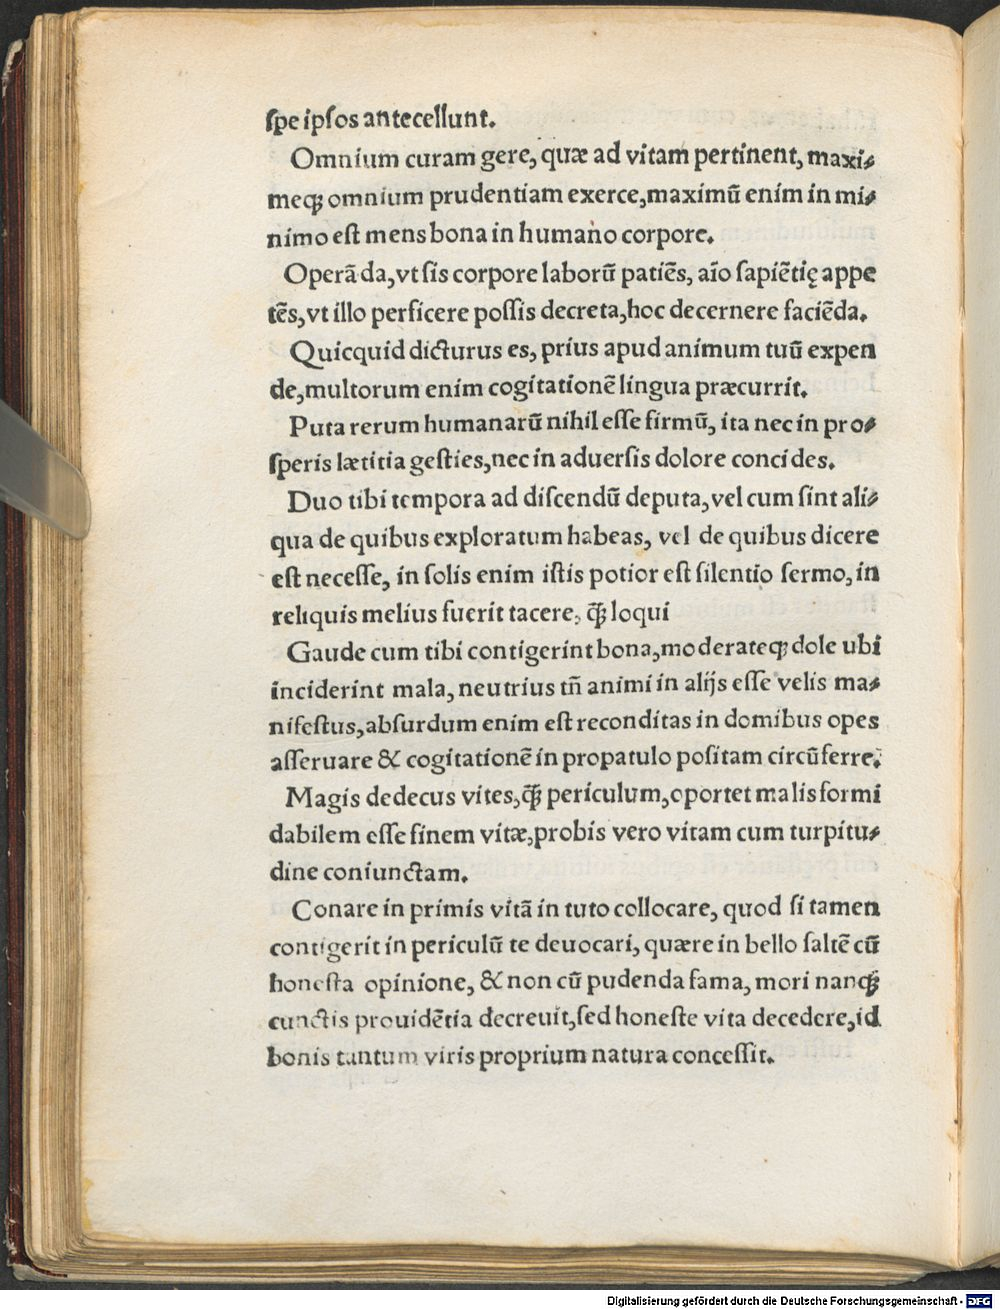 spe ipsos antecellunt.
Omnium curam gere, quæ ad vitam pertinent, maxi⸗
meqꝫ omnium prudentiam exerce, maximũ enim in mi⸗
nimo est mens bona in humano corpore.
Operã da, vt sis corpore laborũ patiẽs, aĩo sapiẽtię appe
tẽs, vt illo perficere possis decreta, hoc decernere faciẽda.
Quicquid dicturus es, prius apud animum tuũ expen
de, multorum enim cogitationẽ lingua præcurrit.
Puta rerum humanarũ nihil esse firmũ, ita nec in pro⸗
speris lætitia gesties, nec in aduersis dolore concides.
Duo tibi tempora ad discendũ deputa, vel cum sint ali⸗
qua de quibus exploratum habeas, vel de quibus dicere
est necesse, in solis enim istis potior est silentio sermo, in
reliquis melius fuerit tacere, q̃ꝫ loqui
Gaude cum tibi contigerint bona, moderateqꝫ dole ubi
inciderint mala, neutrius tñ animi in alijs esse velis ma⸗
nifestus, absurdum enim est reconditas in domibus opes
asseruare & cogitationẽ in propatulo positam circũferre.
Magis dedecus vites, q̃ꝫ periculum, oportet malis formi
dabilem esse finem vitæ, probis vero vitam cum turpitu⸗
dine coniunctam.
Conare in primis vitã in tuto collocare, quod si tamen
contigerit in periculũ te deuocari, quære in bello saltẽ cũ
honesta opinione, & non cũ pudenda fama, mori nanqꝫ
cunctis prouidẽtia decreuit, sed honeste vita decedere, id
bonis tantum viris proprium natura concessit.
Digitalisierung gefördert durch die Deutsche Forschungsgemeinschaft - DFG